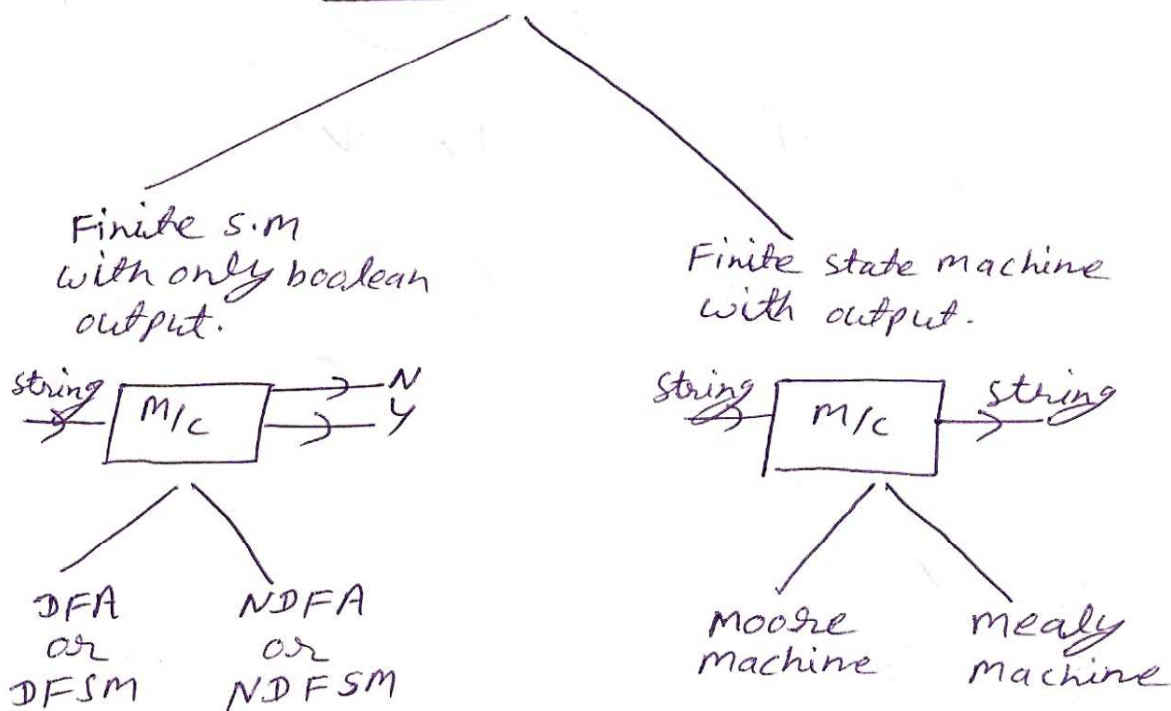 Finite S.M
with only boolean
output.
string
M/C
N
Y
DFA
or
DFSM
NDFA
or
NDFSM
Finite state machine
with output.
string
M/C
string
Moore
machine
mealy
machine